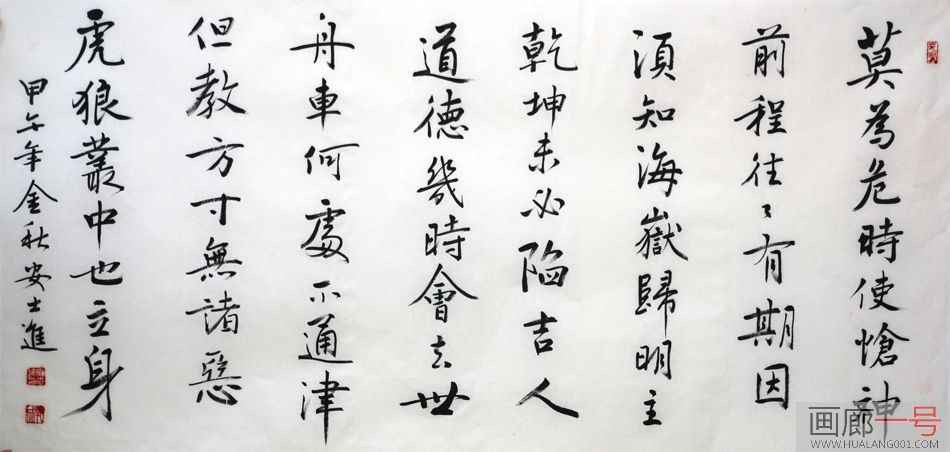 莫為危時使愴神
前程往々有期因
須知海嶽歸明主
乾坤未必陷吉人
道德幾時會去世
舟車何處不通津
但教方寸無諸惡
虎狼叢中也立身
甲午年金秋安士進
画廊一号
WWW.HUALANG001.COM